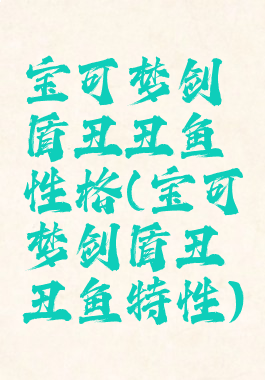 宝可梦剑
盾丑丑鱼
性格(宝可
梦剑盾丑
丑鱼特性)